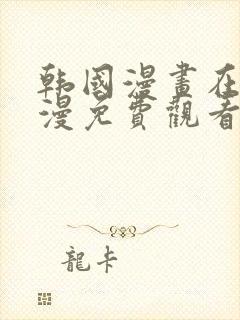 韩國漫畫在
漫免費觀看
龍卡